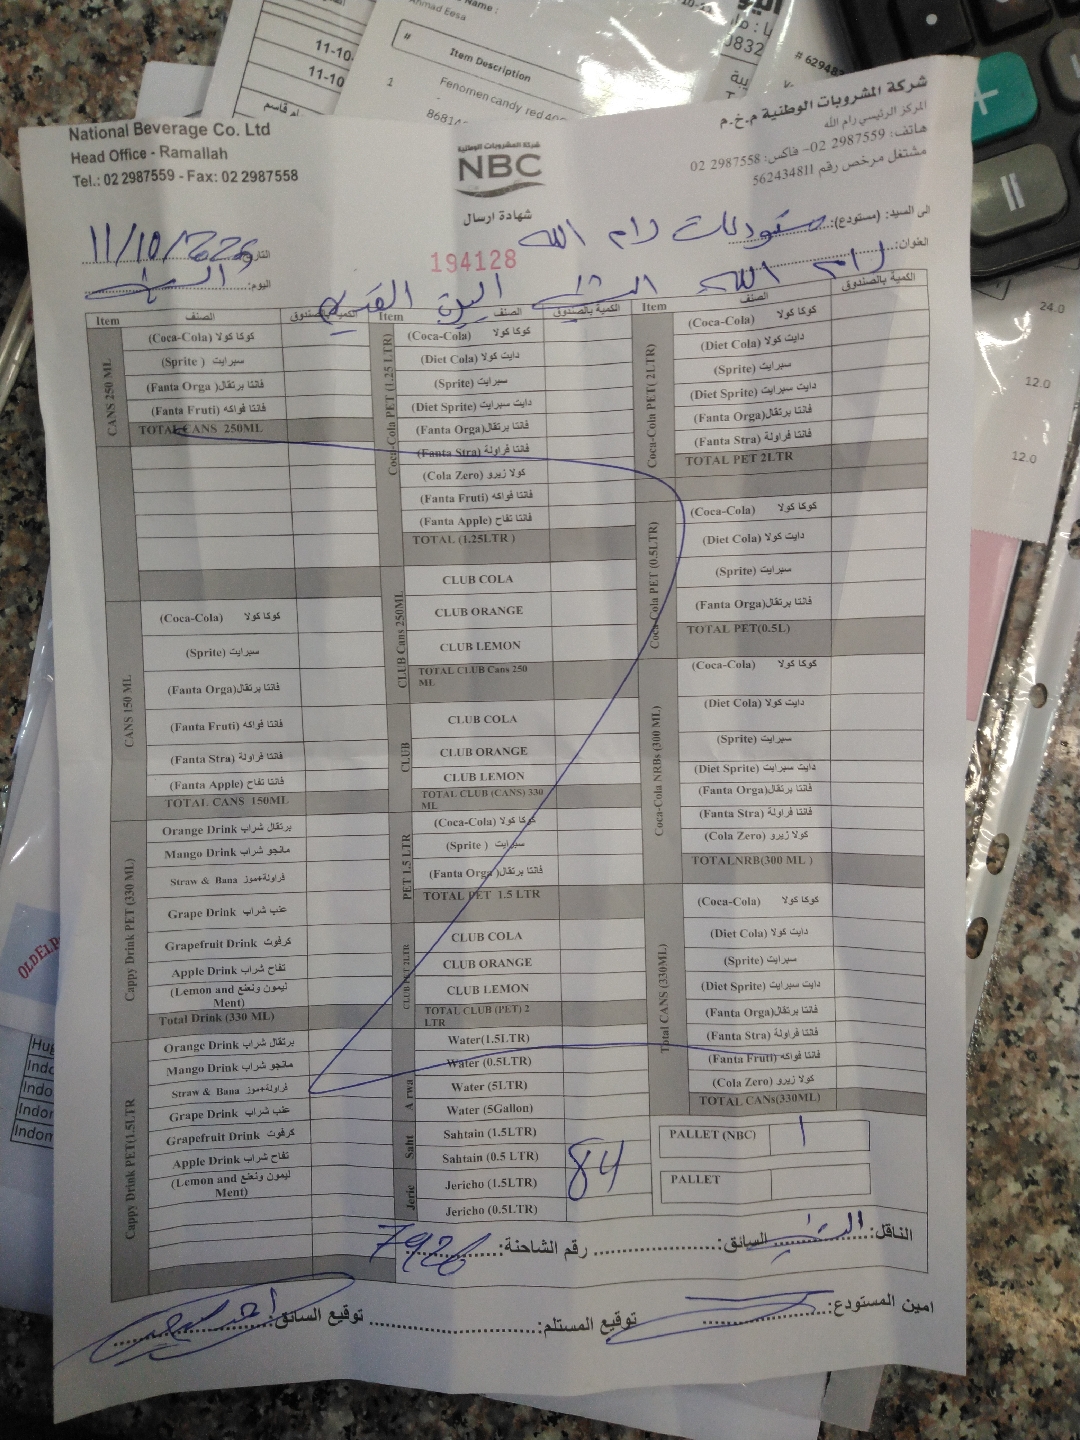 Name :
Ahmad Eesa
#
Item Description
1
Fenomen candy red
11-10
11-10
# 62948
24.0
12.0
12.0
National Beverage Co. Ltd
Head Office - Ramallah
Tel.: 02 2987559 - Fax: 02 2987558
شركة المشروبات الوطنية
NBC
شهادة ارسال
194128
شركة المشروبات الوطنية م.خ.م
المركز الرئيسي رام الله
هاتف: 2987559 02– فاكس: 2987558 02
مشتغل مرخص رقم 562434811
الى السيد: (مستودع): مستودعات رام الله
العنوان: رام الله
التاريخ: 11/10/
اليوم:
Item الصنف الكمية بالصندوق
CANS 250 ML
(Coca-Cola) كوكا كولا
(Sprite ) سبرايت
(Fanta Orga) فانتا برتقال
(Fanta Fruti) فانتا فواكه
TOTAL CANS 250ML
CANS 150 ML
(Coca-Cola) كوكا كولا
(Sprite) سبرايت
(Fanta Orga) فانتا برتقال
(Fanta Fruti) فانتا فواكه
(Fanta Stra) فانتا فراولة
(Fanta Apple) فانتا تفاح
TOTAL CANS 150ML
Cappy Drink PET (330 ML)
Orange Drink برتقال شراب
Mango Drink مانجو شراب
Straw & Bana فراولة+موز
Grape Drink عنب شراب
Grapefruit Drink كرفوت
Apple Drink تفاح شراب
(Lemon and ليمون ونعنع
Ment)
Total Drink (330 ML)
Cappy Drink PET(1.5LTR
Orange Drink برتقال شراب
Mango Drink مانجو شراب
Straw & Bana فراولة+موز
Grape Drink عنب شراب
Grapefruit Drink كرفوت
Apple Drink تفاح شراب
(Lemon and ليمون ونعنع
Ment)
Item الصنف الكمية بالصندوق
Coca-Cola PET (1.25 LTR)
(Coca-Cola) كوكا كولا
(Diet Cola) دايت كولا
(Sprite) سبرايت
(Diet Sprite) دايت سبرايت
(Fanta Orga) فانتا برتقال
(Fanta Stra) فانتا فراولة
(Cola Zero) كولا زيرو
(Fanta Fruti) فانتا فواكه
(Fanta Apple) فانتا تفاح
TOTAL (1.25LTR )
CLUB Cans 250ML
CLUB COLA
CLUB ORANGE
CLUB LEMON
TOTAL CLUB Cans 250
ML
CLUB
CLUB COLA
CLUB ORANGE
CLUB LEMON
TOTAL CLUB (CANS) 330
ML
PET 1.5 LTR
(Coca-Cola) كوكا كولا
(Sprite ) سبرايت
(Fanta Orga) فانتا برتقال
TOTAL PET 1.5 LTR
CLUB PET 2LTR
CLUB COLA
CLUB ORANGE
CLUB LEMON
TOTAL CLUB (PET) 2
LTR
Arwa
Water(1.5LTR)
Water (0.5LTR)
Water (5LTR)
Water (5Gallon)
Saht
Sahtain (1.5LTR)
Sahtain (0.5 LTR)
Jeric
Jericho (1.5LTR) 84
Jericho (0.5LTR)
Item الصنف الكمية بالصندوق
Coca-Cola PET( 2LTR)
(Coca-Cola) كوكا كولا
(Diet Cola) دايت كولا
(Sprite) سبرايت
(Diet Sprite) دايت سبرايت
(Fanta Orga) فانتا برتقال
(Fanta Stra) فانتا فراولة
TOTAL PET 2LTR
Coca-Cola PET (0.5LTR)
(Coca-Cola) كوكا كولا
(Diet Cola) دايت كولا
(Sprite) سبرايت
(Fanta Orga) فانتا برتقال
TOTAL PET(0.5L)
Coca-Cola NRBs (300 ML)
(Coca-Cola) كوكا كولا
(Diet Cola) دايت كولا
(Sprite) سبرايت
(Diet Sprite) دايت سبرايت
(Fanta Orga) فانتا برتقال
(Fanta Stra) فانتا فراولة
(Cola Zero) كولا زيرو
TOTALNRB(300 ML )
Total CANS (330ML)
(Coca-Cola) كوكا كولا
(Diet Cola) دايت كولا
(Sprite) سبرايت
(Diet Sprite) دايت سبرايت
(Fanta Orga) فانتا برتقال
(Fanta Stra) فانتا فراولة
(Fanta Fruti) فانتا فواكه
(Cola Zero) كولا زيرو
TOTAL CANs(330ML)
PALLET (NBC) 1
PALLET
الناقل: السائق: رقم الشاحنة:
امين المستودع: توقيع المستلم: توقيع السائق: